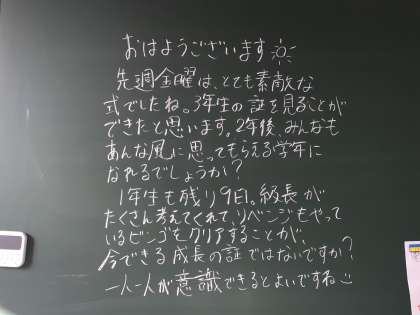 おはようございます
先週金曜は、とても素敵な
式でしたね。3年生の証を見ることが
できたと思います。2年後、みんなも
あんな風に思ってもらえる学年に
なれるでしょうか？
1年生も残り9日。級長が
たくさん考えてくれて、リベンジもやって
いるビンゴをクリアすることが、
今できる成長の証ではないですか？
一人一人が意識できるとよいですね